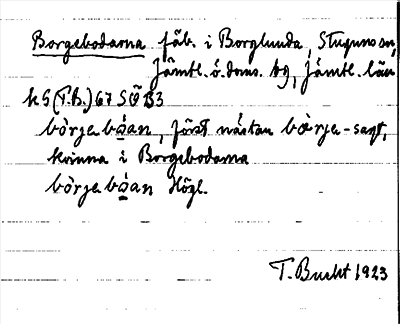 Borgebodarna fäb. i Borglunda, Stuguns sn,
Jämtl. ö. doms. hg, Jämtl. län
k G (T.B.) 67 S Ö B 3
bòrjebǫ́an, först nästan bœrje- sagt,
kvinna i Borgebodarna
bòrjebǫ́an Högl.
T. Bucht 1923